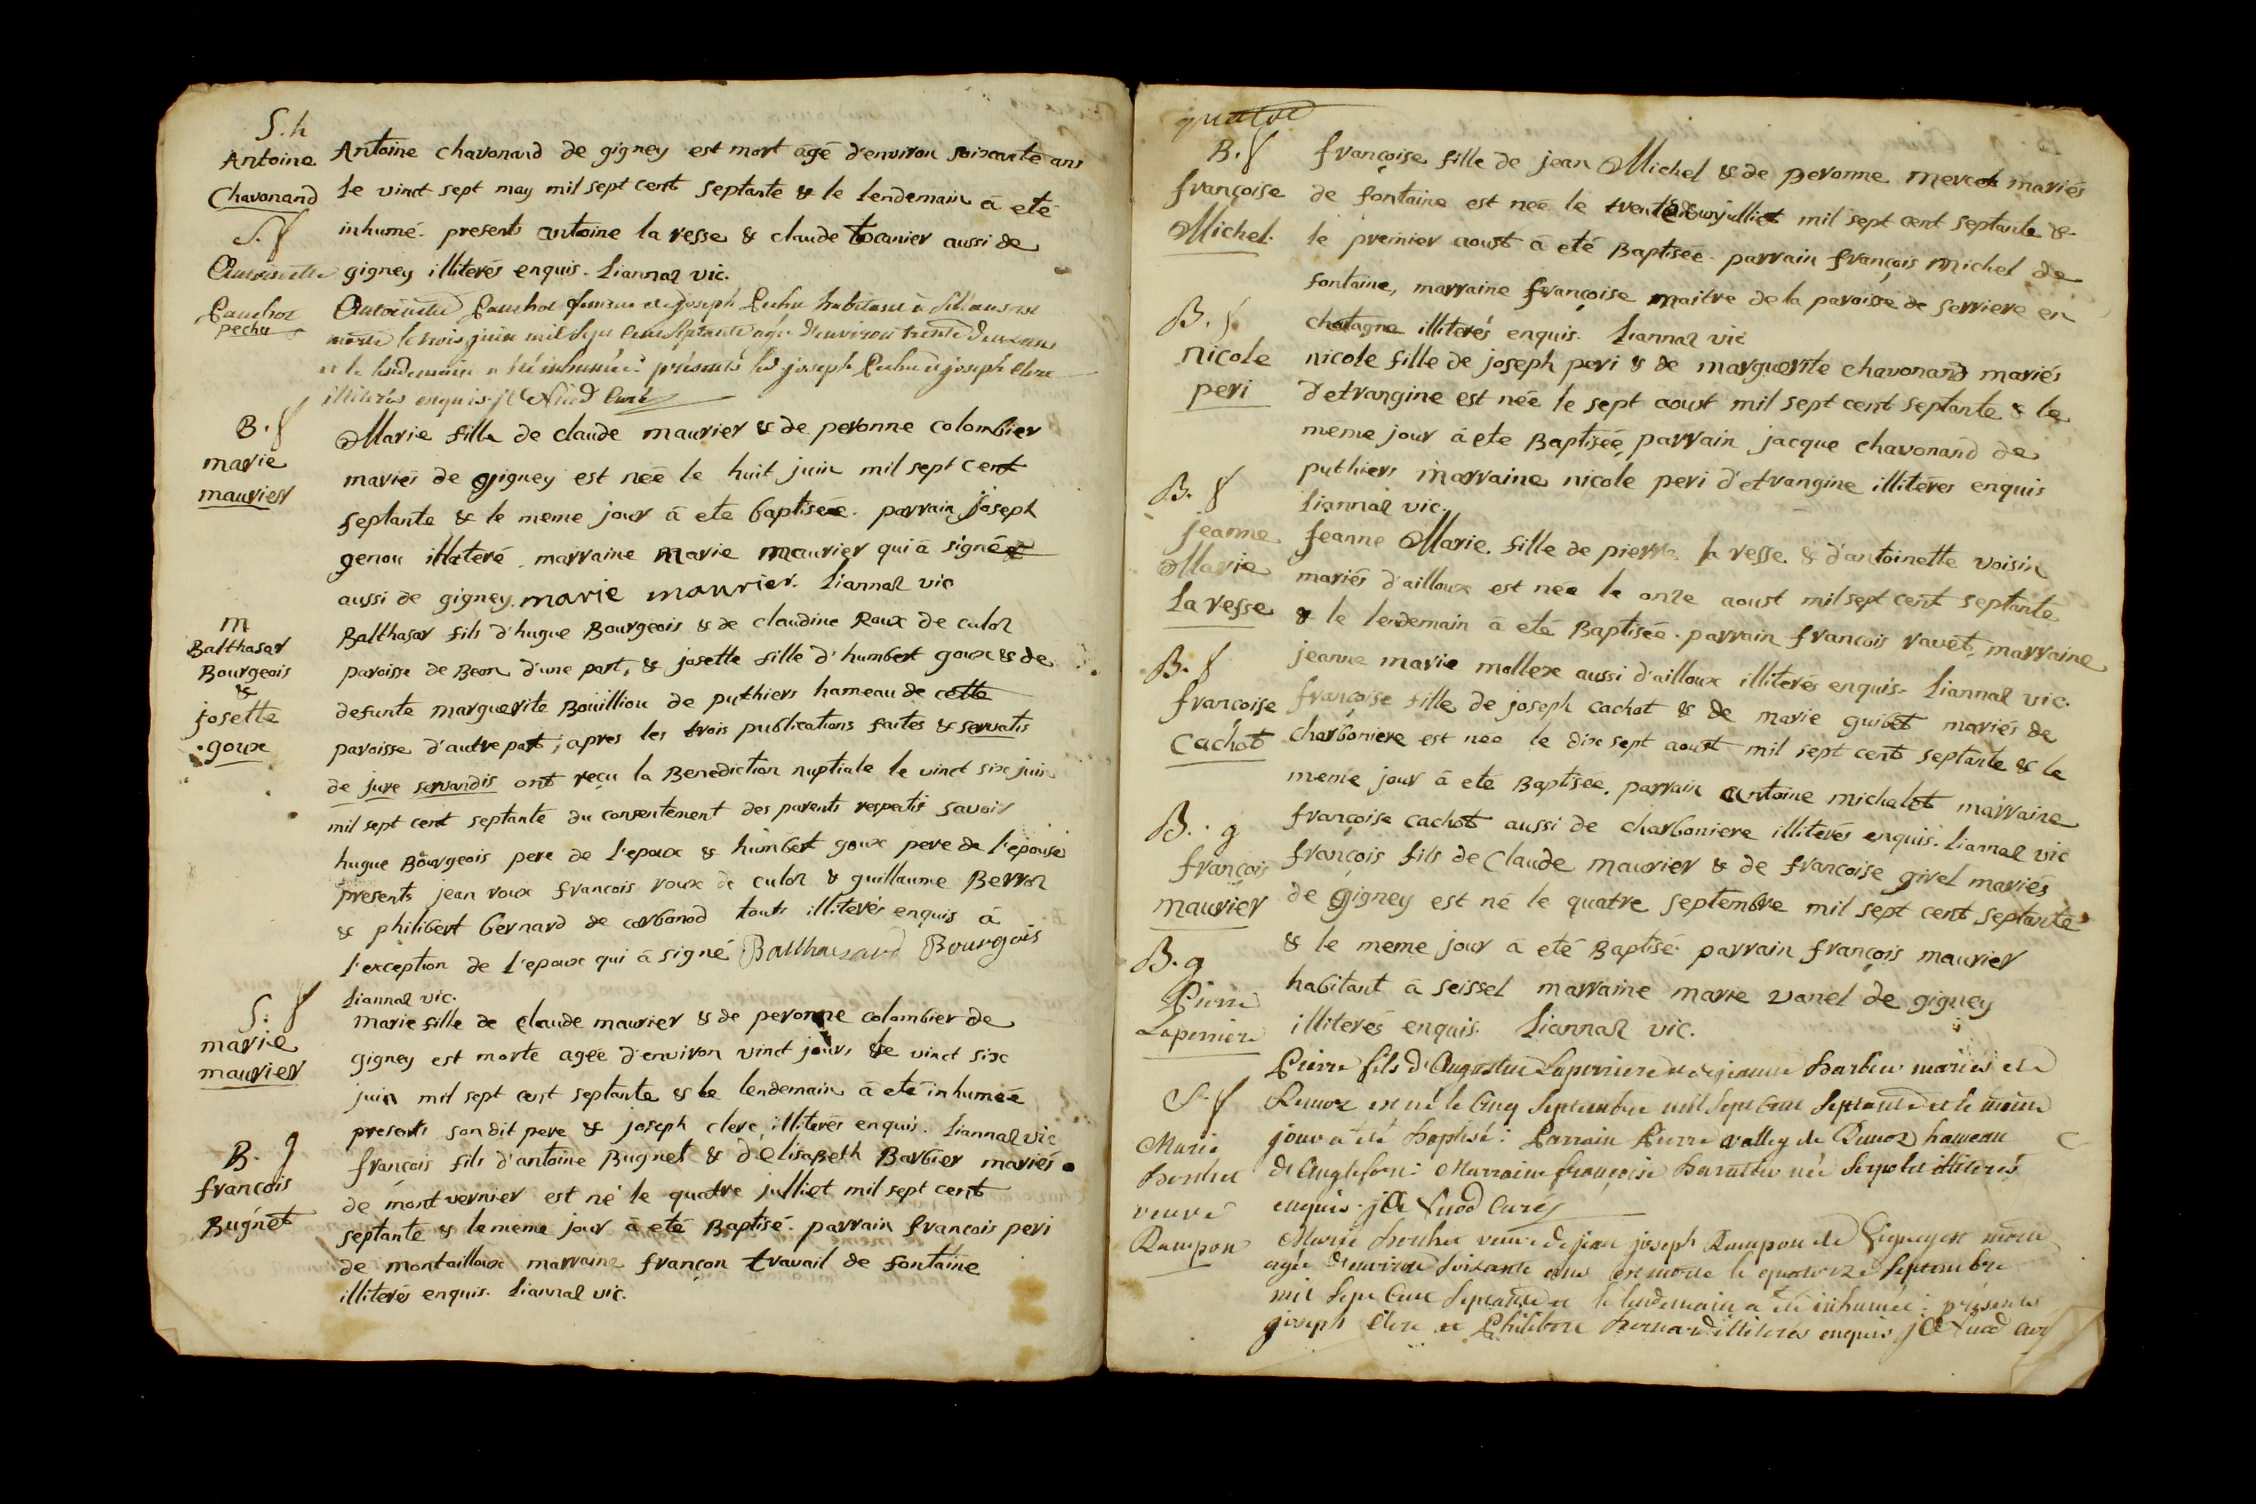 S. h
Antoine
Chavonand
Antoine chavonand de gigney est mort agé d'environ soixante ans
le vinct sept may mil sept cent septante & le lendemain à eté
inhumé. presents antoine la resse & claude tocanier aussi de
gigney illiterés enquis. Liannaz vic.
S. f
Antoinette
Pauchoz
pechu
Antoinette Pauchoz femme de joseph Pechu habitant à
morte le trois juin mil sept cent septante agée d'environ trente deux ans
et le lendemain a été inhumée: présents led joseph Pechu et joseph Clerc
illiterés enquis. Curé
B. f
marie
maurier
Marie fille de claude maurier & de peronne colombier
mariés de gigney est née le huit juin mil sept cent
septante & le meme jour à eté baptisée. parrain joseph
genou illiteré. marraine marie maurier qui à signé
aussi de gigney. marie maurier. Liannaz vic
m
Balthasar
Bourgeois
&
josette
goux
Balthasar fils d'hugue Bourgeois & de claudine Roux de culoz
paroisse de Beon d'une part, & josette fille d'humbert goux & de
defunte marguerite Boüilliou de puthiers hameau de cette
paroisse d'autre part; apres les trois publications faites & servatis
de jure servandis ont reçu la Benediction nuptiale le vinct six juin
mil sept cent septante du consentement des parents respectifs savoir
hugue Bourgeois pere de l'epoux & humbert goux pere de l'epouse
presents jean roux francois roux de culoz & guillaume Berroz
& philibert bernard de corbonod touts illiterés enquis à
l'exception de l'epoux qui à signé Balthazard Bourgois
Liannaz vic.
S. f
marie
maurier
marie fille de claude maurier & de peronne colombier de
gigney est morte agée d'environ vinct jours le vinct six
juin mil sept cent septante & le lendemain à eté inhumée
presents son dit pere & joseph clerc illiterés enquis. Liannaz vic
B. g
francois
Bugnet
francois fils d'antoine Bugnet & d'elisabeth Barbier mariés
de mont vernier est né le quatre julliet mil sept cent
septante & le meme jour à eté Baptisé. parrain francois peri
de montailloux marraine françon travail de fontaine
illiterés enquis. Liannaz vic.
quatre
B. f
françoise
Michel.
françoise fille de jean Michel & de peronne mercet mariés
de fontaine est née le trente julliet mil sept cent septante &
le premier aoust à eté Baptisée. parrain françois michel de
fontaine, marraine françoise maitre de la paroisse de serriere en
chotagne illiterés enquis. Liannaz vic
B. f
nicole
peri
nicole fille de joseph peri & de marguerite chavonand mariés
d'etrangine est née le sept aoust mil sept cent septante & le
meme jour à ete Baptisée, parrain jacque chavonand de
puthiers marraine nicole peri d'etrangine illiteres enquis
Liannaz vic.
B. f
jeanne
Marie
La resse
jeanne Marie fille de pierre la resse & d'antoinette voisin
mariés d'ailloux est née le onze aoust mil sept cent septante
& le lendemain à eté Baptisée. parrain francois ravet, marraine
jeanne marie mollex aussi d'ailloux illiterés enquis. Liannaz vic.
B. f
françoise
cachot
françoise fille de joseph cachot & de marie guibet mariés de
charboniere est née le dix sept aoust mil sept cent septante & le
meme jour à eté Baptisée, parrain antoine michelot marraine
françoise cachot aussi de charboniere illiterés enquis. Liannaz vic
B. g
françois
maurier
françois fils de claude maurier & de françoise girel mariés
de gigney est né le quatre septembre mil sept cent septante
& le meme jour à eté Baptisé. parrain françois maurier
habitant à seissel marraine marie vanel de gigney
illiterés enquis. Liannaz vic.
B. g
Pierre
Laperriere
Pierre fils d'Augustin Laperriere et de jeanne mariés de
est né le cinq septembre mil sept cent septante et le meme
jour a été baptisé: Parrain Pierre valley de hameau
d'Anglefort: Marraine françoise née illiterés
enquis. Curé
S. f
Marie
veuve
Rampon
Marie veuve de jean joseph Rampon de Gigney est morte
agée d'environ soixante ans est morte le quatorze septembre
mil sept cent septante et le lendemain a été inhumée: présents
joseph Clerc et Philibert Bernard illiterés enquis Curé